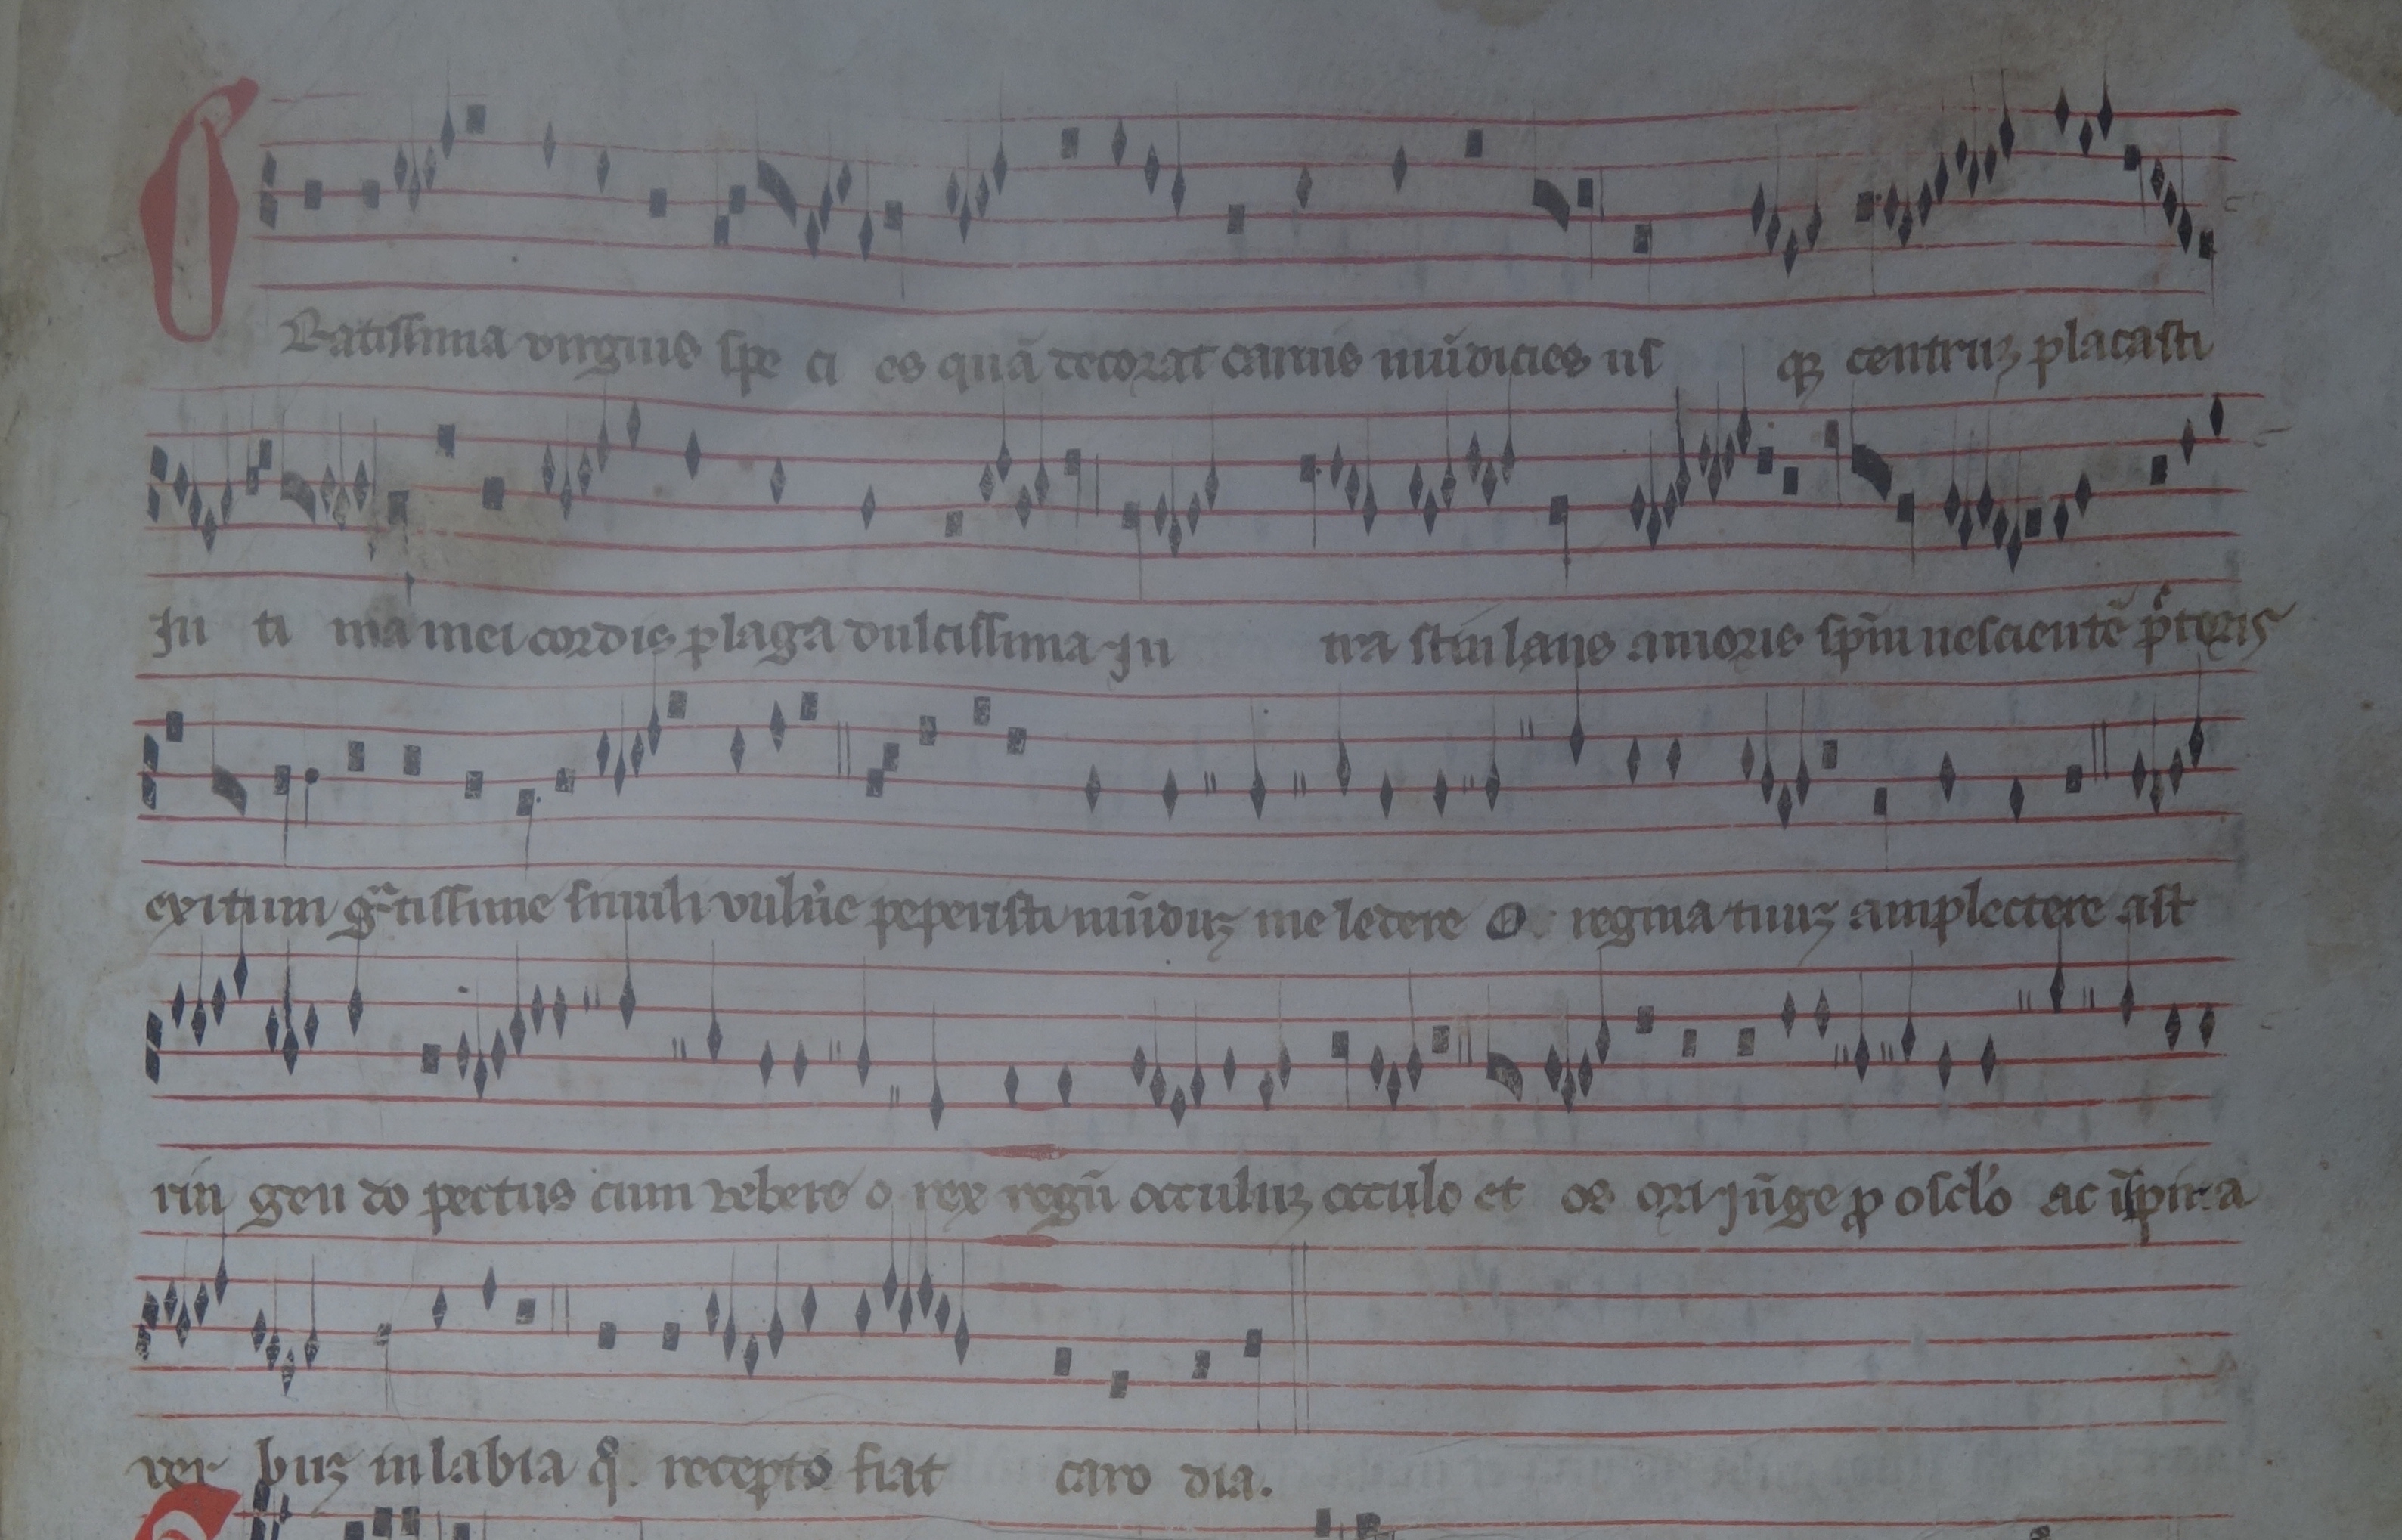 O Gratissima virginis spe ci es quā decorat carnis mūdicies us qꝫ centruꝫ placasti
In ti ma mei cordis plaga dulcissima In tra stin lans amoris spm nescientē p̄teris
exitum gᵃtissime simili vuln̄e peperisti mūduꝫ me ledere O regina tuuꝫ amplectere ast
rin gen do pectus cum vbere o rex regū occuluꝫ occulo et os ori jūge ꝓ oscl'o ac īspira
ver buꝫ in labia q°. recepto fiat caro dia.